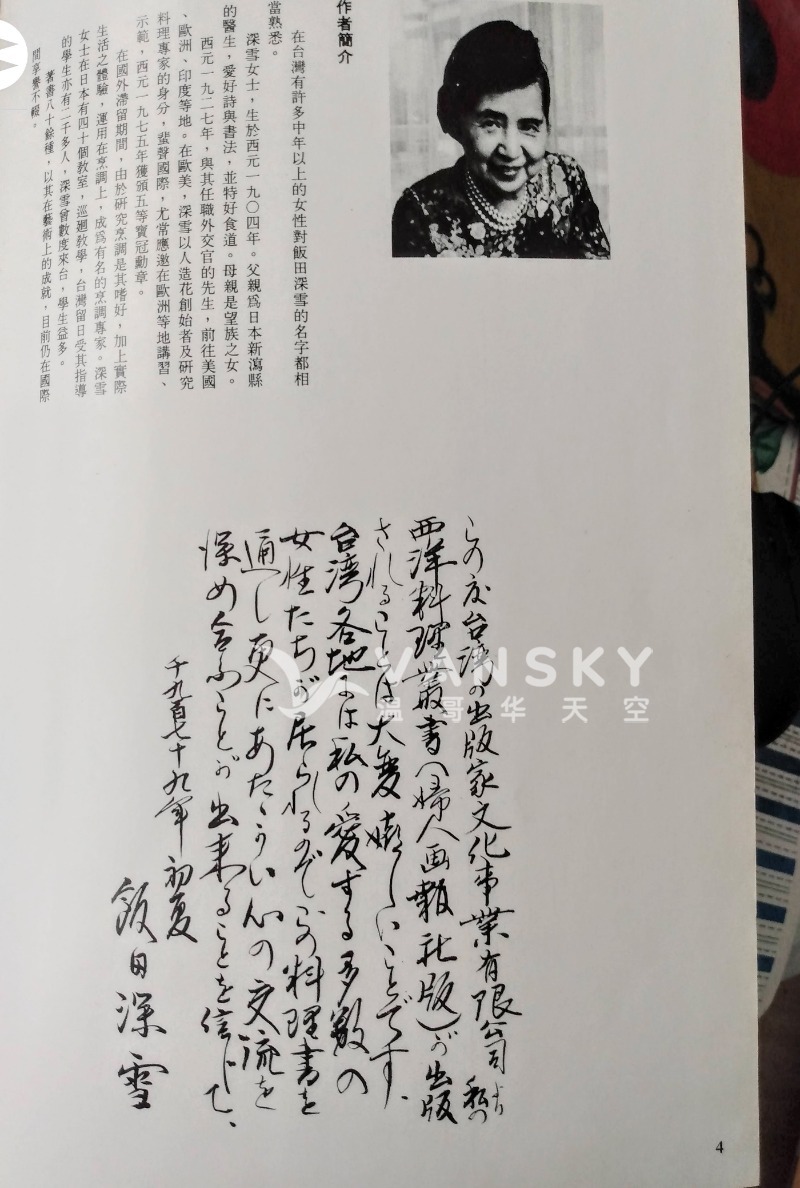 作者簡介
在台灣有許多中年以上的女性對飯田深雪的名字都相
當熟悉。
深雪女士，生於西元一九〇四年。父親爲日本新瀉縣
的醫生，愛好詩與書法，並特好食道。母親是望族之女。
西元一九二七年，與其任職外交官的先生，前往美國
、歐洲、印度等地。在歐美，深雪以人造花創始者及研究
料理專家的身分，蜚聲國際，尤常應邀在歐洲等地講習、
示範，西元一九七五年獲頒五等寶冠勳章。
在國外滯留期間，由於研究烹調是其嗜好，加上實際
生活之體驗，運用在烹調上，成爲有名的烹調專家。深雪
女士在日本有四十個教室，巡廻教學，台灣留日受其指導
的學生亦有二千多人，深雪曾數度來台，學生益多。
著書八十餘種，以其在藝術上的成就，目前仍在國際
間享譽不輟。
この度台湾の出版家文化事業有限公司より私の
西洋料理叢書（婦人画報社版）が出版
されることは大変嬉しいことです、
台湾各地には私の愛する多数の
女性たちが居られるのでこの料理書を
通し更にあたゝかい心の交流を
深め合ふことが出来ることを信じて、
千九百七十九年初夏
飯田深雪
VANSKY
温哥华天空
4